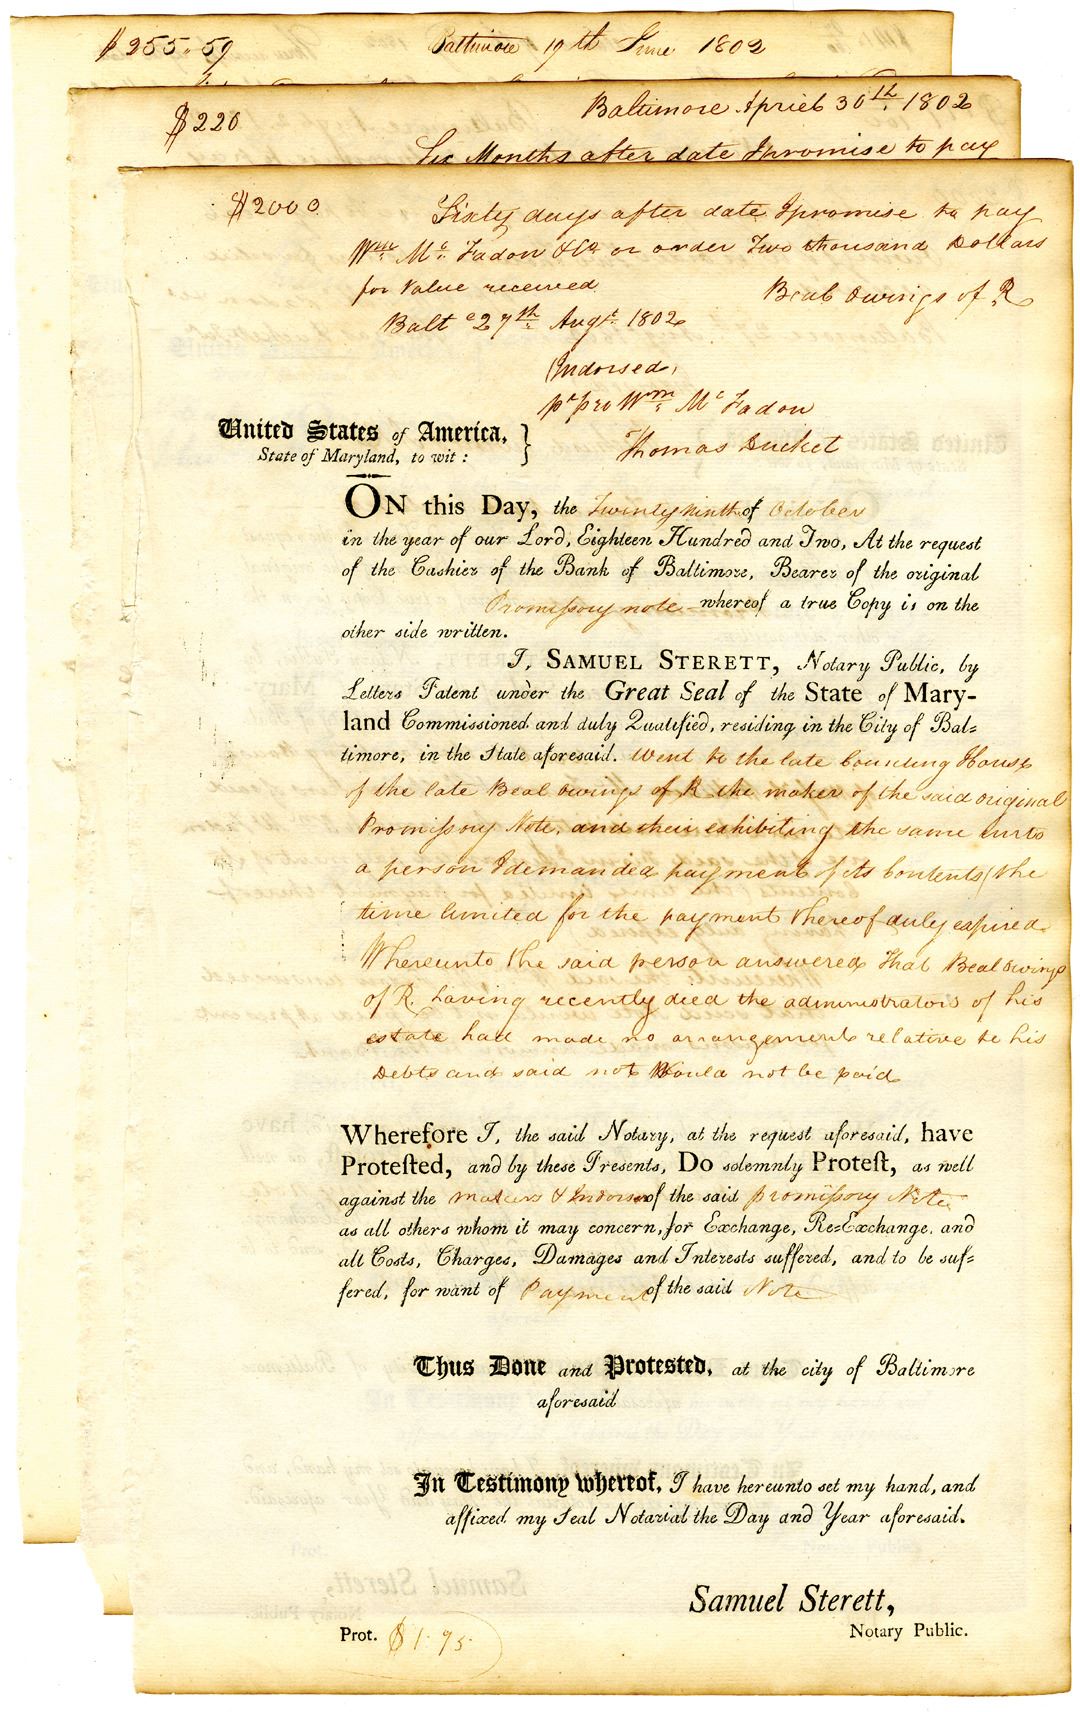 $255.59 Baltimore 19th June 1802
$220 Baltimore April 30th. 1802
Six Months after date I promise to pay
$2000 Sixty days after date I promise to pay
Wm. Mc. Fadon & Co or order Two thousand Dollars
for Value received Beal Owings of R
Balte 27th. Augt. 1802
Indorsed,
pr pro Wm. Mc Fadon
Thomas Ducket
United States of America,
State of Maryland, to wit: }
ON this Day, the Twenty ninth of October
in the year of our Lord, Eighteen Hundred and Two, At the request
of the Cashier of the Bank of Baltimore, Bearer of the original
Promissory note whereof a true Copy is on the
other side written.
I, SAMUEL STERETT, Notary Public, by
Letters Patent under the Great Seal of the State of Mary-
land Commissioned and duly Qualified, residing in the City of Bal=
timore, in the State aforesaid. Went to the late Counting House
of the late Beal Owings of R the maker of the said original
Promissory Note, and their exhibiting the same unto
a person I demanded payment of its Contents (the
time limited for the payment thereof duly expired
Whereunto the said person answered that Beal Owings
of R. having recently died the administrators of his
estate had made no arrangement relative to his
Debts and said not Would not be paid
Wherefore I, the said Notary, at the request aforesaid, have
Protested, and by these Presents, Do solemnly Protest, as well
against the makers & Indorser of the said promissory Note
as all others whom it may concern, for Exchange, Re=Exchange, and
all Costs, Charges, Damages and Interests suffered, and to be suf=
fered, for want of Payment of the said Note
Thus Done and Protested, at the city of Baltimore
aforesaid
In Testimony whereof, I have hereunto set my hand, and
affixed my Seal Notarial the Day and Year aforesaid.
Samuel Sterett,
Notary Public.
Prot. $1.75